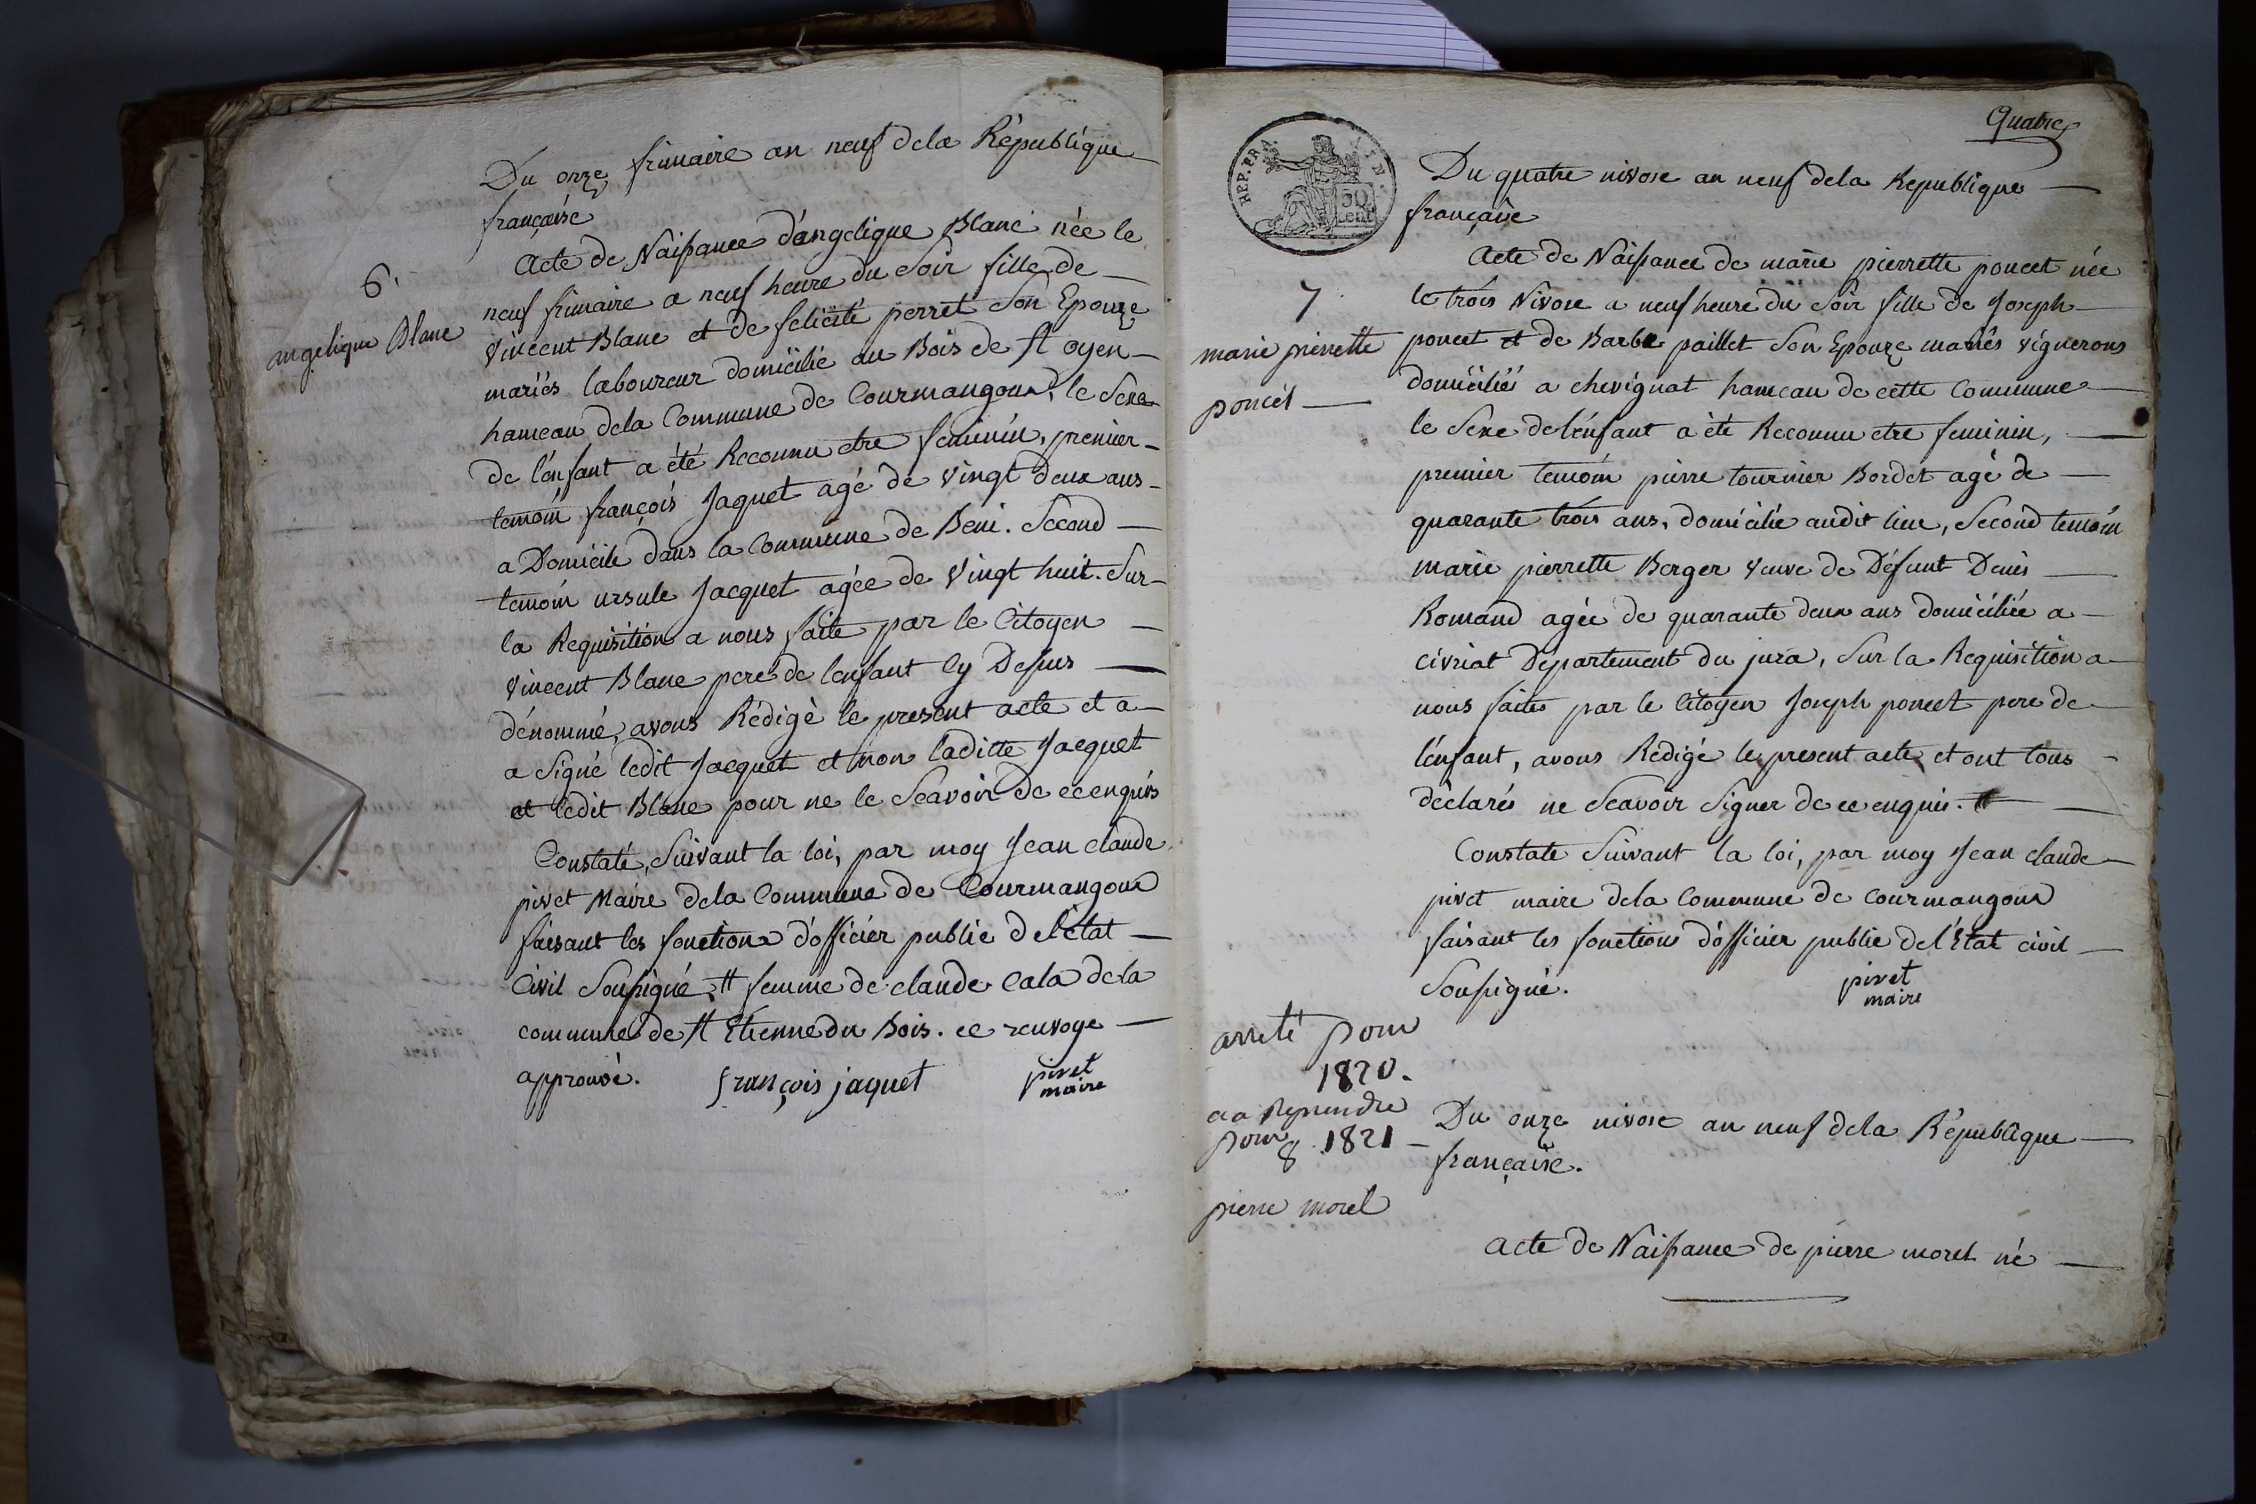 Du onze frimaire an neuf dela République
française
6.
angelique Blanc
Acte de Naissance d'angelique Blanc née le
neuf frimaire a neuf heure du Soir fille de
vincent Blanc et de felicité perret Son Epouze
mariés laboureur domicilié au Bois de St oyen
hameau dela Commune de Courmangoux, le Sexe
de l'enfant a été Reconnu etre féminin, premier
temoin françois Jaquet agé de vingt deux ans
a Domicile dans la Commune de Beni. Second
temoin ursule Jacquet agée de vingt huit. Sur
la Requisition a nous faite par le Citoyen
vincent Blanc pere de l'enfant Cy Dessus
dénommé, avons Rédigé le present acte et a
a Signé ledit Jacquet et non laditte Jacquet
et ledit Blanc pour ne le Scavoir De ce enquis
Constaté, Suivant la loi, par moy Jean claude
pivet Maire dela Commune de Courmangoux
faisant les fonctions d'officier public de l'état
Civil Soussigné, # femme de claude Cala dela
commune de St Etienne du Bois. ce renvoye
approuvé. françois jaquet pivet
maire
Quatre
REP. FRA.
50
cent
Du quatre nivose an neuf dela Republique
française
7
marie pierrette
poncet
Acte de Naissance de marie pierrette poncet née
le trois Nivose a neuf heure du Soir fille de Joseph
poncet et de Barbe paillet Son Epouze mariés vignerons
domiciliés a chevignat hameau de cette Commune
le Sexe de l'enfant a été Reconnu etre feminin,
premier temoin pierre tournier Bordet agé de
quarante trois ans, domicilié audit lieu, Second temoin
marie pierrette Berger veuve de Défunt Denis
Romand agée de quarante deux ans domiciliée a
civriat Département du jura, Sur la Requisition a
nous faite par le Citoyen Joseph poncet pere de
l'enfant, avons Rédigé le present acte et ont tous
déclarés ne Scavoir Signer de ce enquis.
Constaté Suivant la loi, par moy Jean claude
pivet maire dela Commune de Courmangoux
faisant les fonctions d'officier public de l'Etat civil
Soussigné. pivet
maire
arreté pour
1820.
a a Reprendre
pour 1821
8
pierre morel
Du onze nivose an neuf dela République
française.
Acte de Naissance de pierre morel né